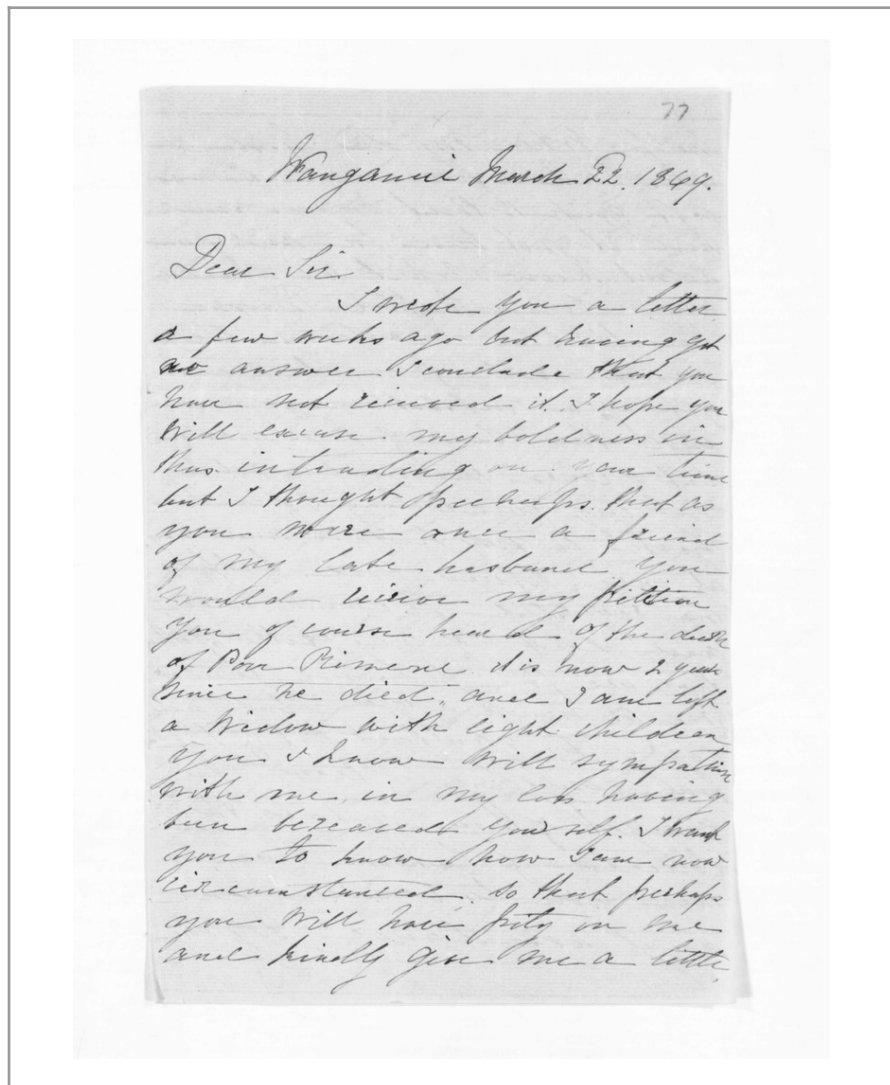 77
Wanganui March 22. 1869.
Dear Sir
I wrote you a letter
a few weeks ago but having got
no answer I conclude that you
have not received it. I hope you
will excuse my boldness in
thus intruding on your time
but I thought perhaps that as
you were once a friend
of my late husband you
would receive my petition
You of course heard of the death
of Poor it is now 2 years
since he died, and I am left
a Widow with eight children
You I know will sympathise
with me in my loss having
been bereaved yourself. I want
you to know how I am now
circumstanced, so that perhaps
you will have pity on me
and kindly give me a little